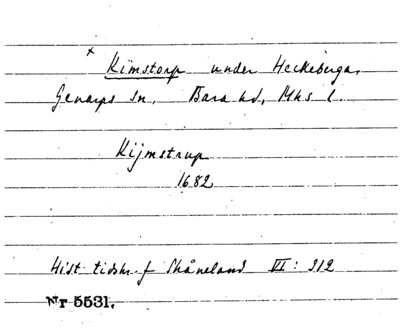 x
Kimstorp under Heckeberga,
Genarps sn. Bara hd, Mhs l.
Kijmstrup
1682
Hist tidskr f Skåneland VI: 312
Nr 5531.